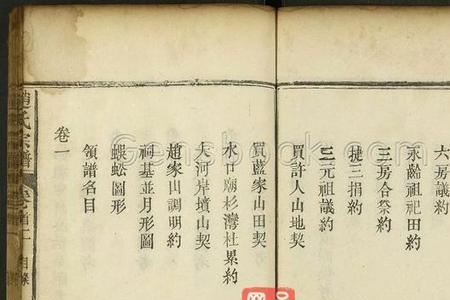 六房議約
永齡祖祀田約
三房合祭約
捷三捐約
三元祖議約
買許人山地契
買藍家山田契
水口廟杉灣杜累約
大河岸墳山契
趙家山調明約
祠基並月形圖
蜈蚣圖形
領譜名目
卷一
趙氏宗譜
卷首一
目錄
Gensbook.com